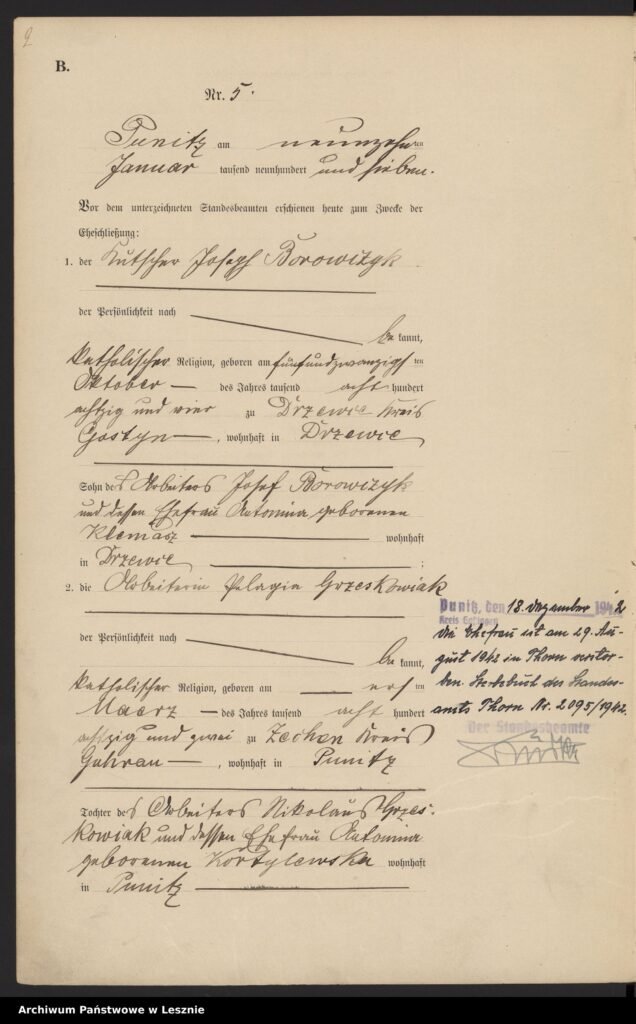 2
B.
Nr. 5.
Punitz am neunzehnten
Januar tausend neunhundert und sieben.
Vor dem unterzeichneten Standesbeamten erschienen heute zum Zwecke der
Eheschließung:
1. der Kutscher Joseph Borowizyk
der Persönlichkeit nach
bekannt,
katholischer Religion, geboren am fünfundzwanzigsten
Oktober des Jahres tausend acht hundert
achtzig und vier zu Drzewce Kreis
Gostyn, wohnhaft in Drzewce
Sohn des Arbeiters Josef Borowizyk
und dessen Ehefrau Antonina geborenen
Klemasz wohnhaft
in Drzewce;
2. die Arbeiterin Pelagia Grzeskowiak
der Persönlichkeit nach
bekannt,
katholischer Religion, geboren am ersten
Maerz des Jahres tausend acht hundert
achtzig und zwei zu Zechen Kreis
Guhrau, wohnhaft in Punitz
Tochter des Arbeiters Nikolaus Grzes-
kowiak und dessen Ehefrau Antonina
geborenen Kortylewska wohnhaft
in Punitz
Punitz, den 18. Dezember 1942
Kreis
Die Ehefrau ist am 29. Au-
gust 1942 in Thorn verstor-
ben. Sterbebuch des Standes-
amts Thorn Nr. 2095/1942.
Der Standesbeamte
Archiwum Państwowe w Lesznie